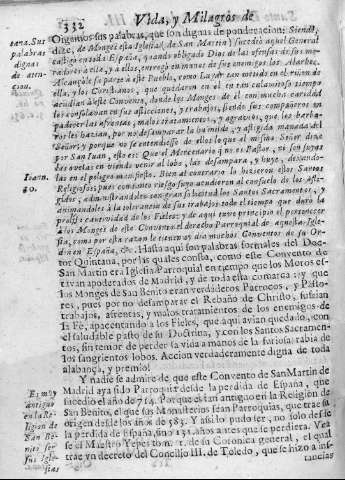 332
Vida, y Milagros de
tana. Sus
palabras
dignas
de aten-
cion.
Oigamos sus palabras, que son dignas de ponderacion: Siendo,
dize, de Monges esta Iglesia (de San Martin) sucediò aquel General
castigo en toda España, y quando obligado Dios de las ofensas de sus mo-
radores à ella, y a ellos, entregò en manos de sus enemigos los Alarbes.
Alcançòle su parte à este Pueblo, como Lugar tan metido en el riñon de
ella, y los Christianos, que quedaron en el en tan calamitoso tiempo
acudian à este Convento, donde los Monges de èl con mucha caridad
los consolavan en sus aflicciones, y trabajos, siendo sus compañeros en
padecer las afrentas, malos tratamientos, y agravios, que los barba-
ros les hazian, por no desamparar la humilde, y afligida manada del
Señor; y porque no se entendiesse de ellos lo que el mismo Señor dixo
Ioann.
10.
por San Juan, este es: Que el Mercenario q no es Pastor, ni son suyas
las ovejas en viendo venir al lobo, las desampara, y huye, dexando-
las en el peligro manifiesto. Bien al contrario lo hizieron estos Santos
Religiosos; pues con tanto riesgo suyo acudieron al consuelo de los afli-
gidos, administrandoles con gran santidad los Santos Sacramentos, y
animandoles à la tolerancia de sus trabajos todo el tiempo que durò la
prolixa cautividad de los Fieles; y de aqui tuvo principio el pertenecer
à los Monges de este Convento el derecho Parroquial de aquella Igle-
sia, como por esta razon le tienen oy dia muchos Conventos de su Or-
den en España, &c. Hasta aqui son palabras formales del Doc-
tor Quintana, por las quales consta, como este Convento de
San Martin era Iglesia Parroquial en tiempo que los Moros es-
tavan apoderados de Madrid, y de toda esta comarca: y que
los Monges de San Benito eran verdaderos Parrocos, y Pasto-
res, pues por no desamparar el Rebaño de Christo, sufrian
trabajos, afrentas, y malos tratamientos de los enemigos de
la Fè, apacentando à los Fieles, que aqui avian quedado, con
el saludable pasto de su Doctrina, y con los Santos Sacramen-
tos, sin temor de perder la vida à manos de la furiosa rabia de
los sangrientos lobos. Accion verdaderamente digna de toda
alabança, y premio!
Es muy
antiguo
en la Re-
ligion de
San Be-
nito ser
sus Igle-
sias
Y nadie se admire de que este Convento de San Martin de
Madrid aya sido Parroquia desde la perdida de España, que
sucediò el año de 714. Porque es tan antiguo en la Religion de
San Benito, el que sus Monasterios sean Parroquias, que trae su
origen desde los años de 583. Y assi lo pudo ser, no solo desde
la perdida de España, sino 131. años antes que se perdiera. Vea-
se el Maestro Yepes tom. 1. de su Coronica general, el qual
trae vn decreto del Concilio III. de Toledo, que se hizo à ins-
tancias